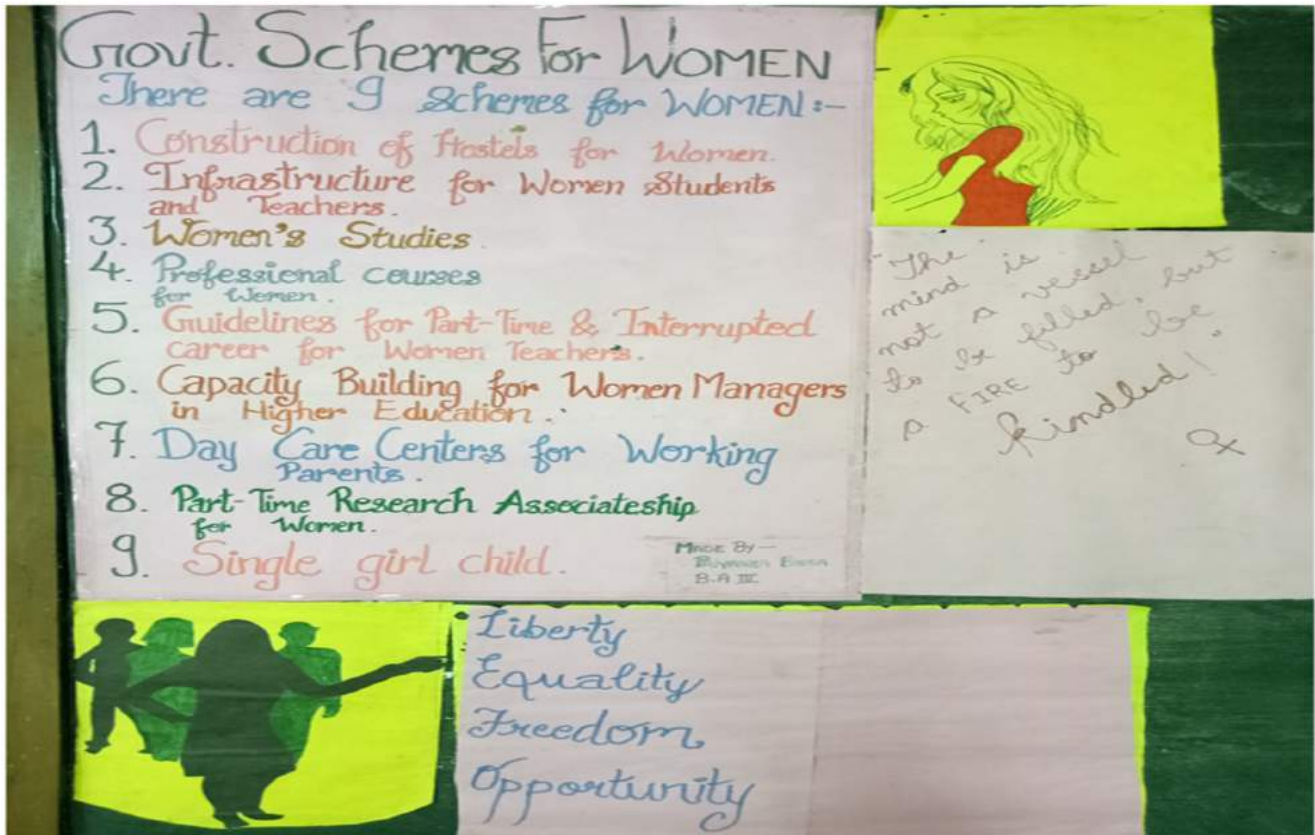 Govt. Schemes For WOMEN
There are 9 Schemes for WOMEN :-
1. Construction of Hostels for Women.
2. Infrastructure for Women Students
and Teachers.
3. Women's Studies.
4. Professional courses
for Women.
5. Guidelines for Part-Time & Interrupted
career for Women Teachers.
6. Capacity Building for Women Managers
in Higher Education.
7. Day Care Centers for Working
Parents.
8. Part-Time Research Associateship
for Women.
9. Single girl child.
MADE By —
B.A III
"The
mind is
not a vessel
to be filled, but
a FIRE to be
kindled!"
♀
Liberty
Equality
Freedom
Opportunity